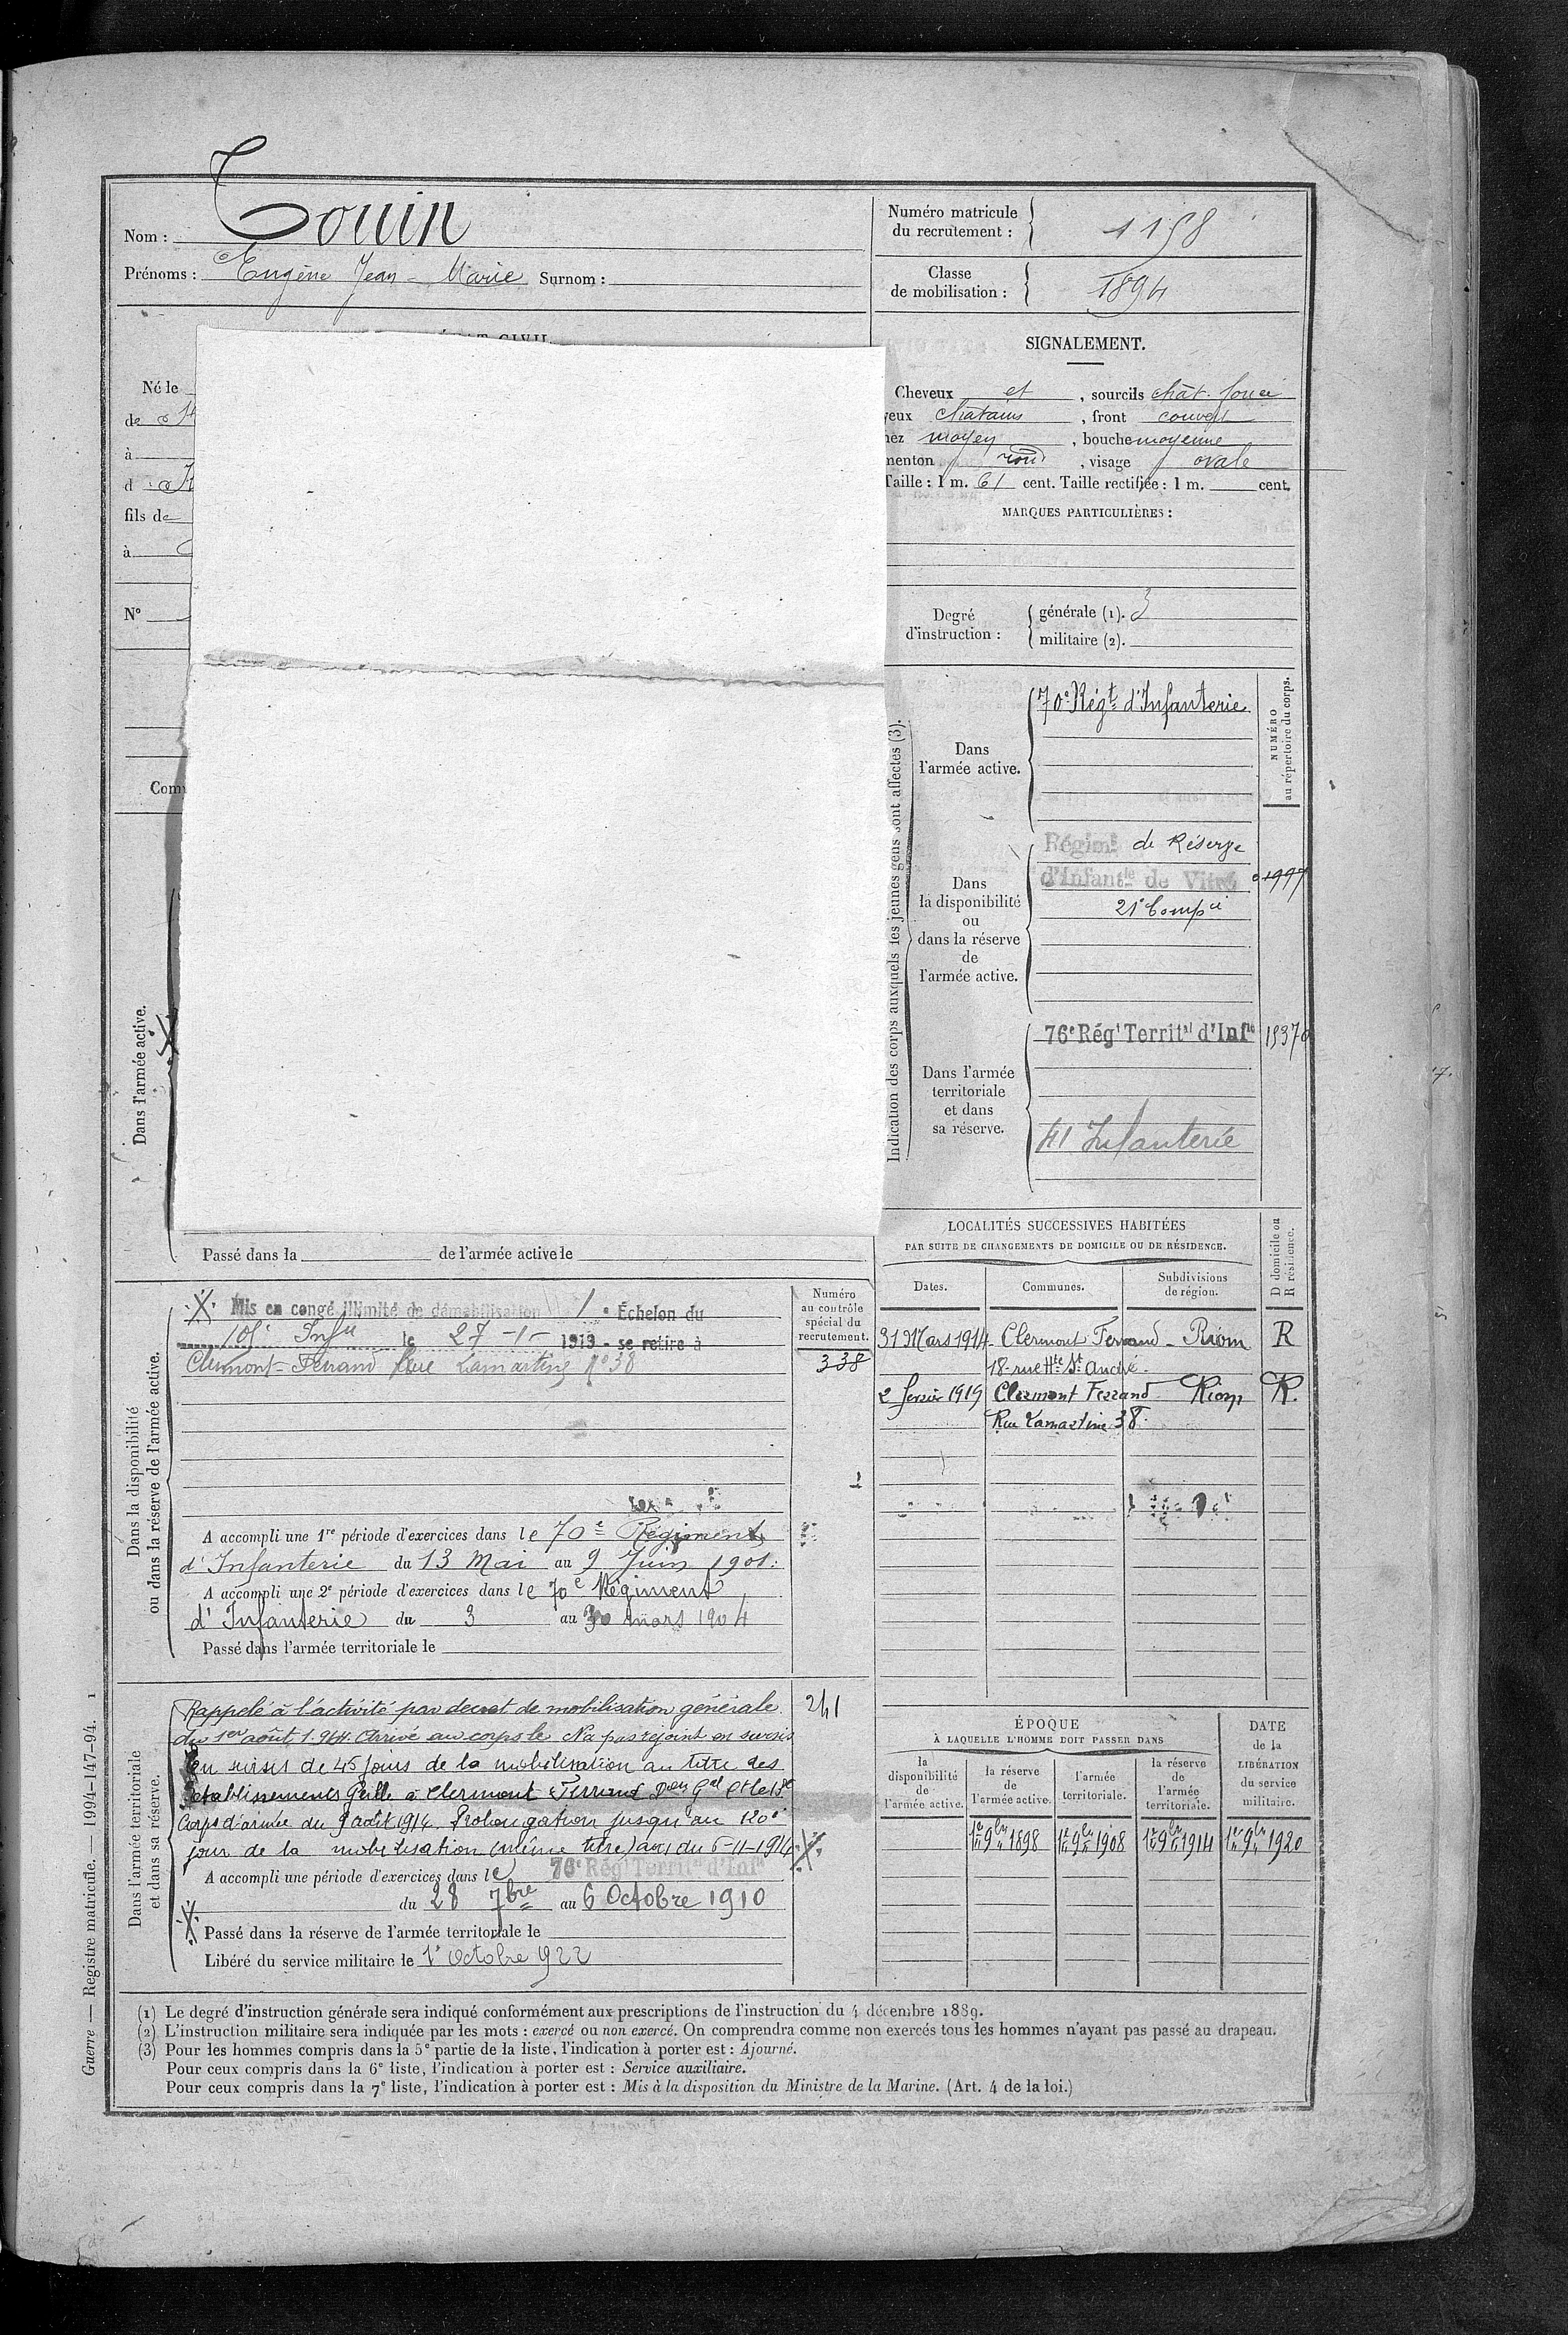 Nom : Touin
Prénoms : Eugène Jean-Marie Surnom :
Numéro matricule
du recrutement : 1158
Classe
de mobilisation : 1894
Né le
de
à
d
fils de
à
N°
Dans l'armée active.
Passé dans la de l'armée active le
SIGNALEMENT.
Cheveux et , sourcils chât. foncé
yeux châtains , front couvert
nez moyen , bouche moyenne
menton rond , visage ovale
Taille : 1 m. 61 cent. Taille rectifiée : 1 m. cent.
MARQUES PARTICULIÈRES :
Degré
d'instruction :
générale (1). 3
militaire (2).
Indication des corps auxquels les jeunes gens sont affectés (3).
NUMÉRO
au répertoire du corps.
Dans
l'armée active.
70e Régt d'Infanterie
Dans
la disponibilité
ou
dans la réserve
de
l'armée active.
Régimt de Réserve
d'Infantie de Vitré 1997
21e Compie
Dans l'armée
territoriale
et dans
sa réserve.
76e Régt Territal d'Infie 15370
41 Infanterie
LOCALITÉS SUCCESSIVES HABITÉES
PAR SUITE DE CHANGEMENTS DE DOMICILE OU DE RÉSIDENCE.
Dates. Communes. Subdivisions
de région.
D domicile ou
R résidence.
31 Mars 1914 Clermont Ferrand - Riom R
18 rue Hte St André.
2 février 1919 Clermont Ferrand Riom R.
Rue Lamartine 38.
Dans la disponibilité
ou dans la réserve de l'armée active.
Numéro
au contrôle
spécial du
recrutement.
338
Mis en congé illimité de démobilisation 1e Échelon du
105e Infie le 27-1-1919 - se retire à
Clermont-Ferrand Rue Lamartine N° 38
A accompli une 1re période d'exercices dans le 70e Régiment
d'Infanterie du 13 Mai au 9 Juin 1901.
A accompli une 2e période d'exercices dans le 70e Régiment
d'Infanterie du 3 au 30 mars 1904
Passé dans l'armée territoriale le
Dans l'armée territoriale
et dans sa réserve.
241
Rappelé à l'activité par décret de mobilisation générale
du 1er août 1914. Arrivé au corps le N'a pas rejoint en sursis
En sursis de 45 jours de la mobilisation au titre des
établissements à Clermont Ferrand Don Gal Ct le 13e
Corps d'armée du 9 août 1914. Prolongation jusqu'au 120e
jour de la mobilisation (même titre) avis du 6-11-1914
A accompli une période d'exercices dans le 76e Régt Territal d'Infie
du 28 7bre au 6 Octobre 1910
Passé dans la réserve de l'armée territoriale le
Libéré du service militaire le 1er Octobre 1922
ÉPOQUE
À LAQUELLE L'HOMME DOIT PASSER DANS
DATE
de la
LIBÉRATION
du service
militaire.
la
disponibilité
de
l'armée active.
la réserve
de
l'armée active.
l'armée
territoriale.
la réserve
de
l'armée
territoriale.
1er 9bre 1898 1er 9bre 1908 1er 9bre 1914 1er 9bre 1920
(1) Le degré d'instruction générale sera indiqué conformément aux prescriptions de l'instruction du 4 décembre 1889.
(2) L'instruction militaire sera indiquée par les mots : exercé ou non exercé. On comprendra comme non exercés tous les hommes n'ayant pas passé au drapeau.
(3) Pour les hommes compris dans la 5e partie de la liste, l'indication à porter est : Ajourné.
Pour ceux compris dans la 6e liste, l'indication à porter est : Service auxiliaire.
Pour ceux compris dans la 7e liste, l'indication à porter est : Mis à la disposition du Ministre de la Marine. (Art. 4 de la loi.)
Guerre — Registre matricule. — 1994-147-94. 1